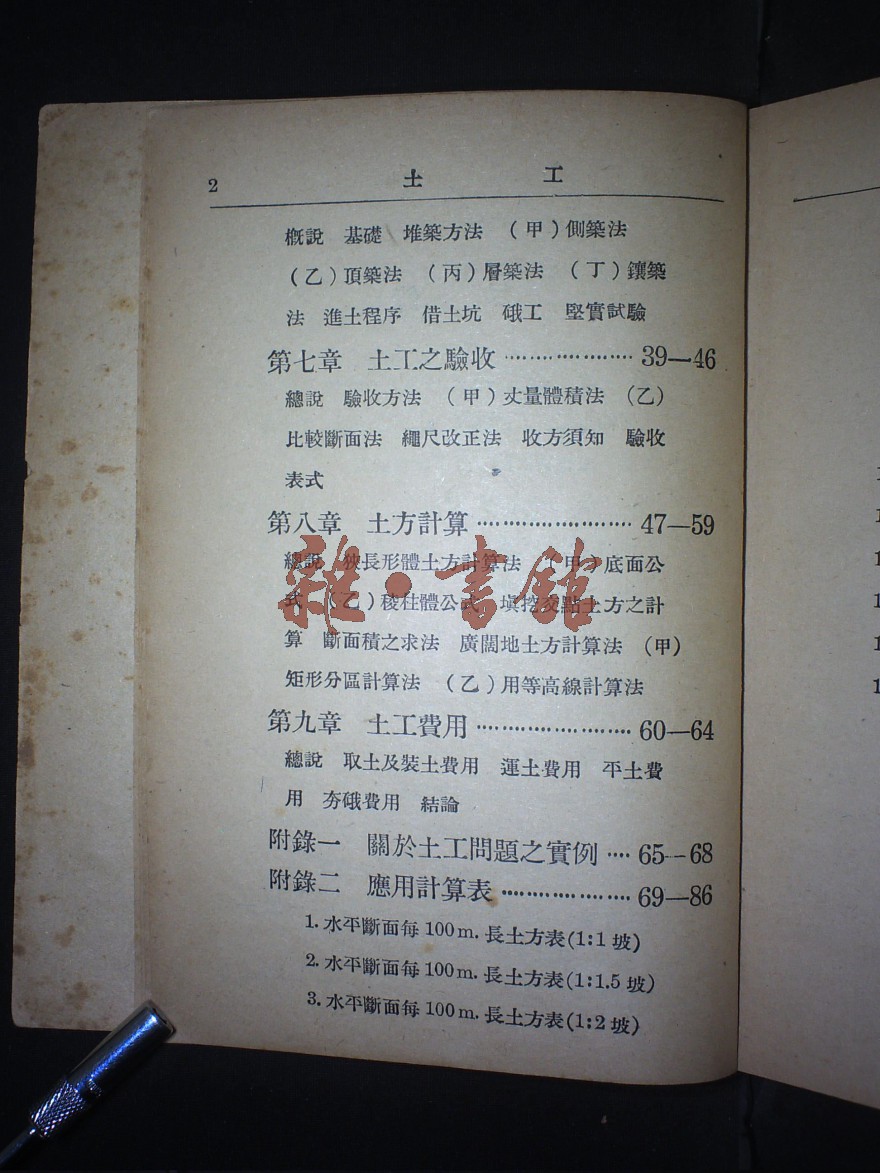 2 土工
概說 基礎 堆築方法 (甲)側築法
(乙)頂築法 (丙)層築法 (丁)鑲築
法 進土程序 借土坑 硪工 堅實試驗
第七章 土工之驗收 ····················· 39—46
總說 驗收方法 (甲)丈量體積法 (乙)
比較斷面法 繩尺改正法 收方須知 驗收
表式
第八章 土方計算 ························ 47—59
總說 狹長形體土方計算法 (甲)底面公
式 (乙)稜柱體公式 填挖交點土方之計
算 斷面積之求法 廣闊地土方計算法 (甲)
矩形分區計算法 (乙)用等高線計算法
第九章 土工費用 ························ 60—64
總說 取土及裝土費用 運土費用 平土費
用 夯硪費用 結論
附錄一 關於土工問題之實例 ···· 65—68
附錄二 應用計算表 ···················· 69—86
1. 水平斷面每100m. 長土方表(1:1坡)
2. 水平斷面每100m. 長土方表(1:1.5坡)
3. 水平斷面每100m. 長土方表(1:2坡)
雜·書館